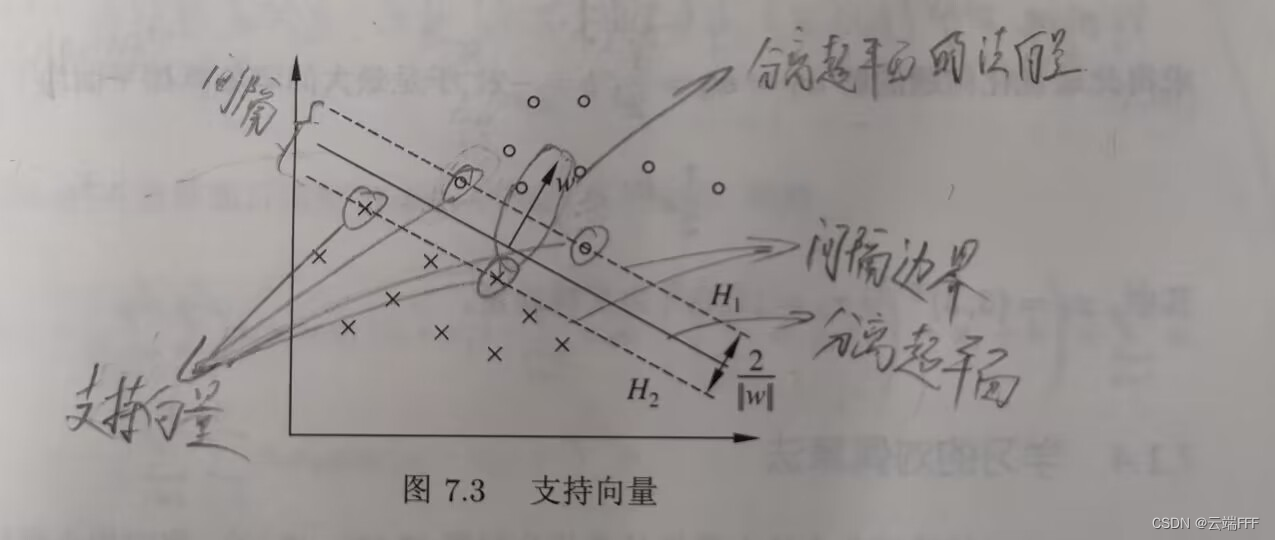 间隔
分离超平面的法向量
w
间隔边界
H₁
分离超平面
2
‖w‖
H₂
支持向量
图 7.3 支持向量
CSDN @云端FFF